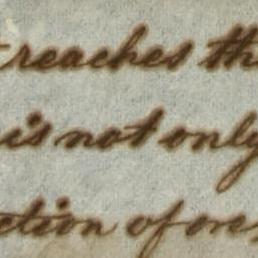 reaches the
is not only
ction of ones